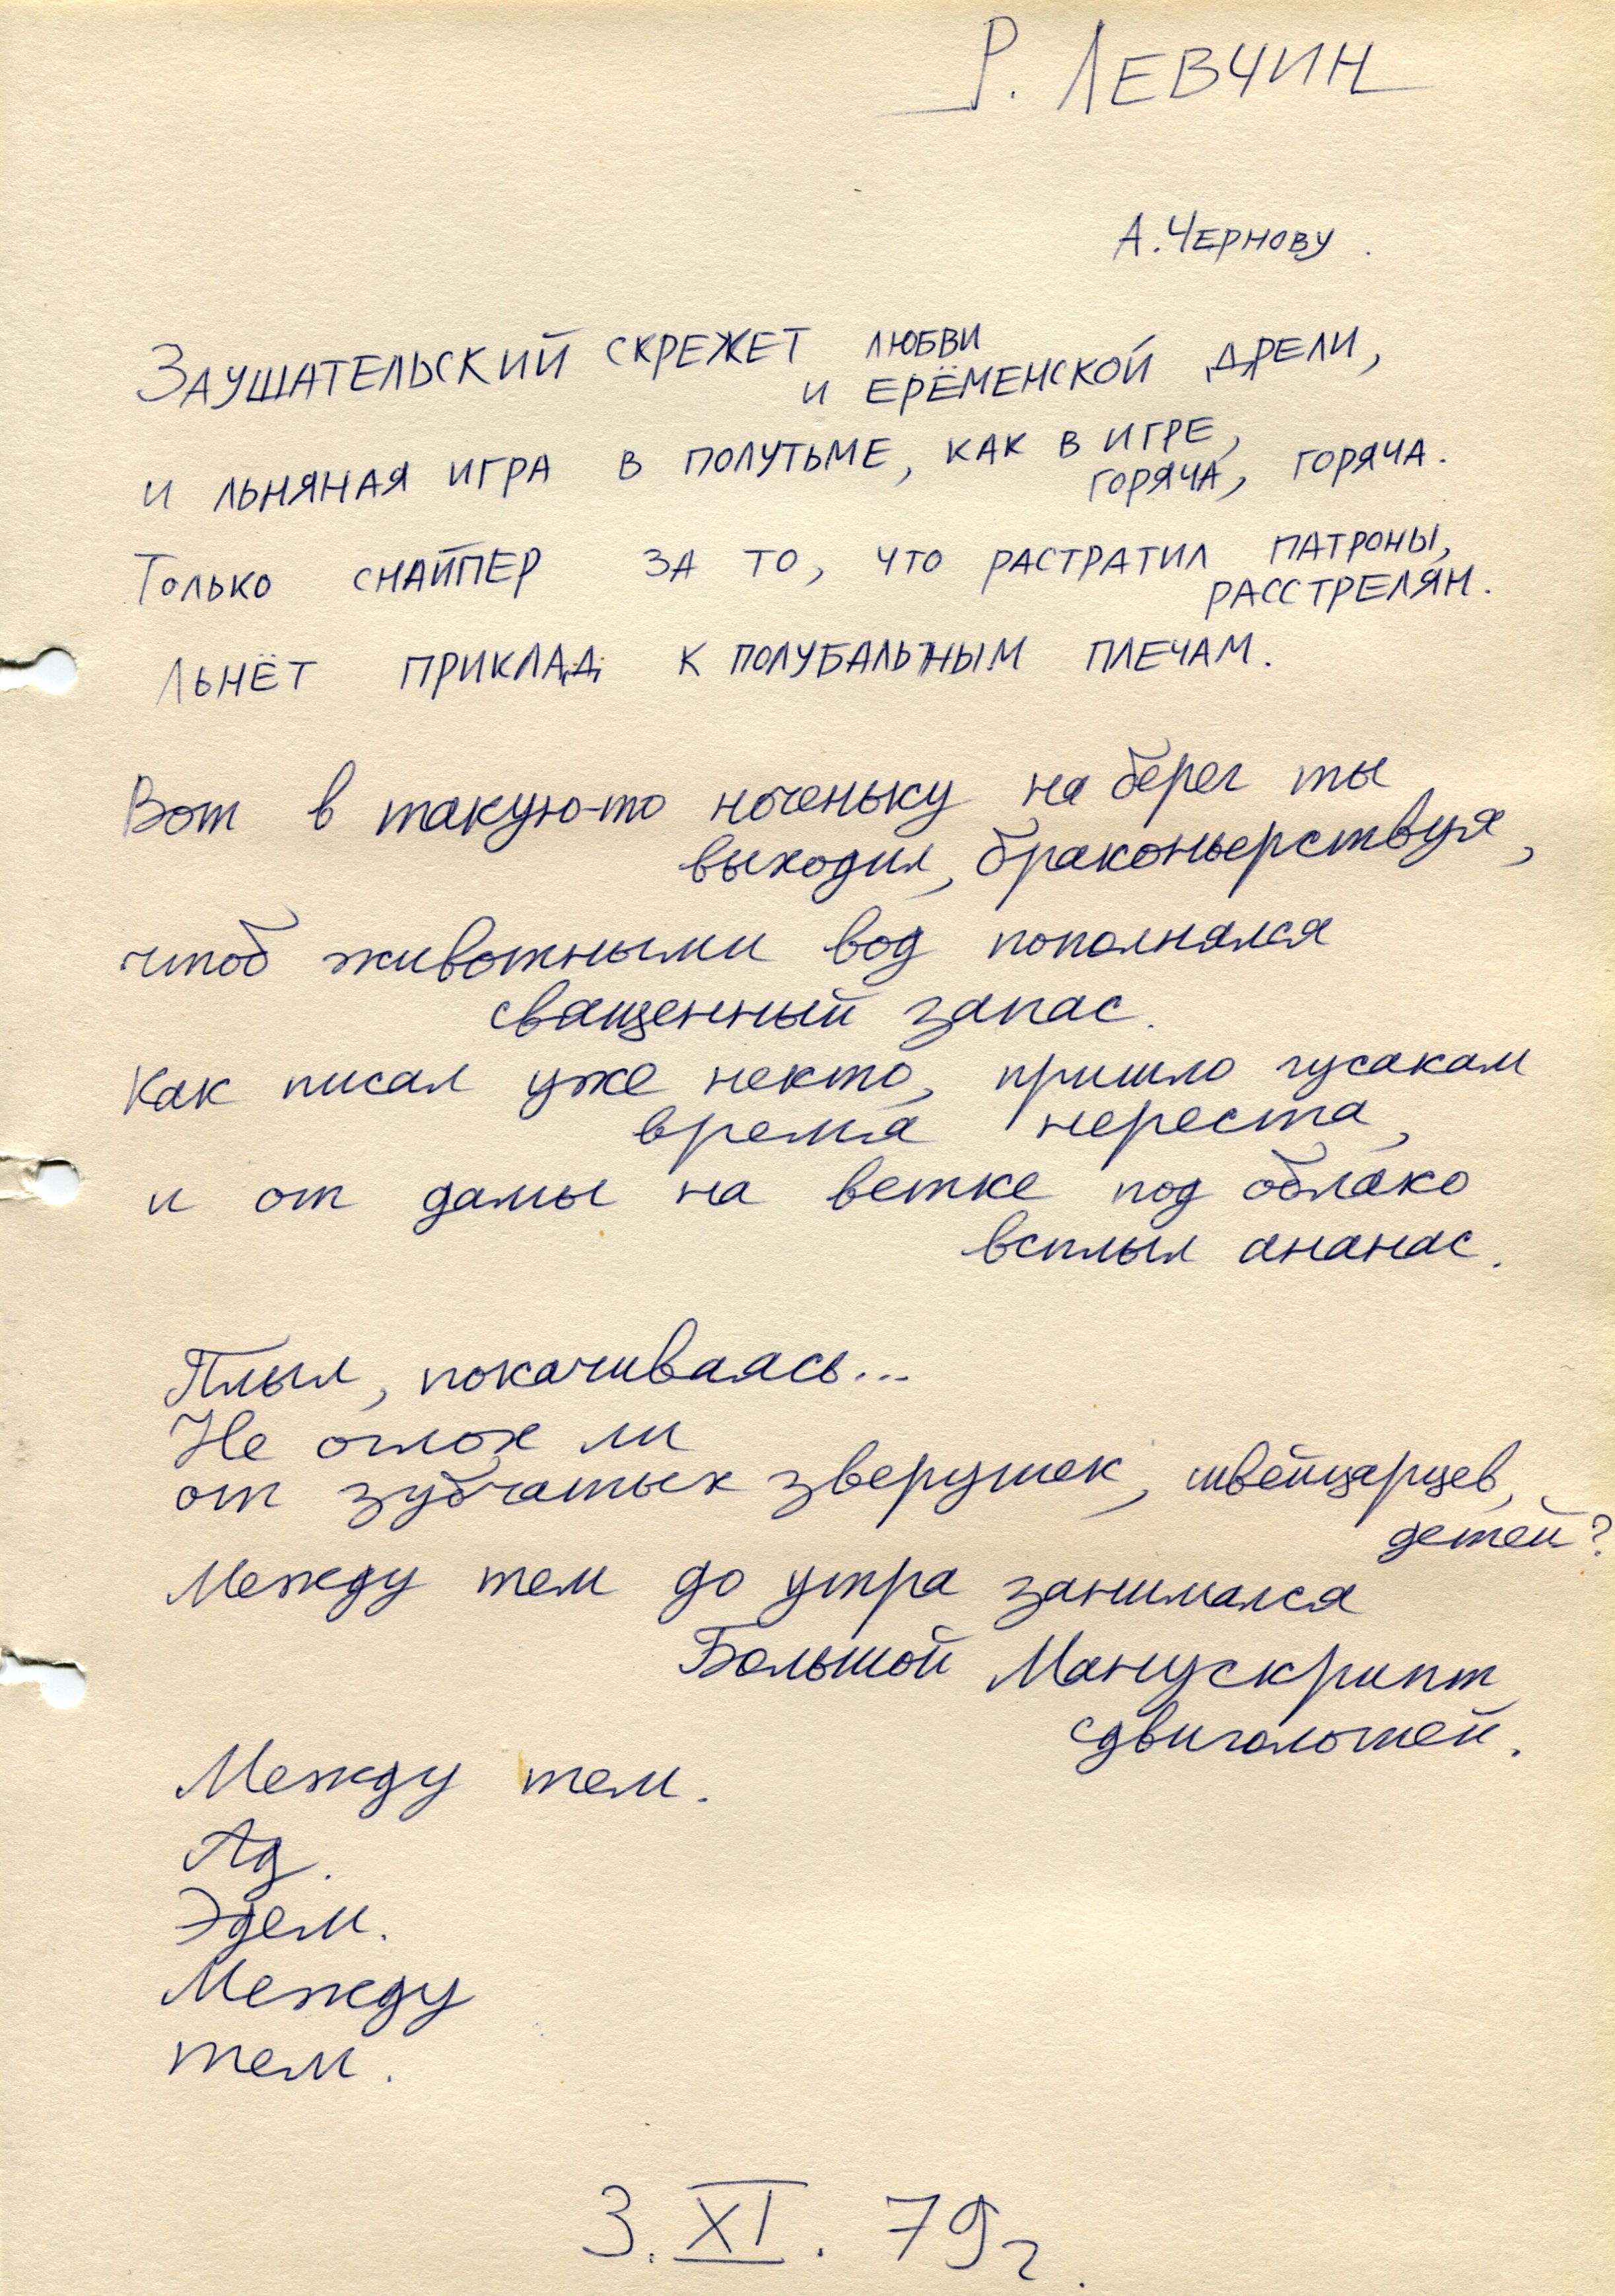 Р. ЛЕВЧИН
А. ЧЕРНОВУ.
ЗАУШАТЕЛЬСКИЙ СКРЕЖЕТ ЛЮБВИ
И ЕРЁМЕНСКОЙ ДРЕЛИ,
И ЛЬНЯНАЯ ИГРА В ПОЛУТЬМЕ, КАК В ИГРЕ,
ГОРЯЧА, ГОРЯЧА.
ТОЛЬКО СНАЙПЕР ЗА ТО, ЧТО РАСТРАТИЛ ПАТРОНЫ,
РАССТРЕЛЯН.
ЛЬНЁТ ПРИКЛАД К ПОЛУБАЛЬНЫМ ПЛЕЧАМ.
Вот в такую-то ноченьку на берег ты
выходил, браконьерствуя,
чтоб животными вод пополнялся
священный запас.
Как писал уже некто, пришло гусакам
время нереста,
и от дамы на ветке под облако
всплыл ананас.
Плыл, покачиваясь...
Не оглох ли
от зубчатых зверушек, швейцарцев,
детей?
Между тем до утра занимался
Большой Манускрипт
сдвигологией.
Между тем.
Ад.
Эдем.
Между
тем.
3. XI. 79 г.